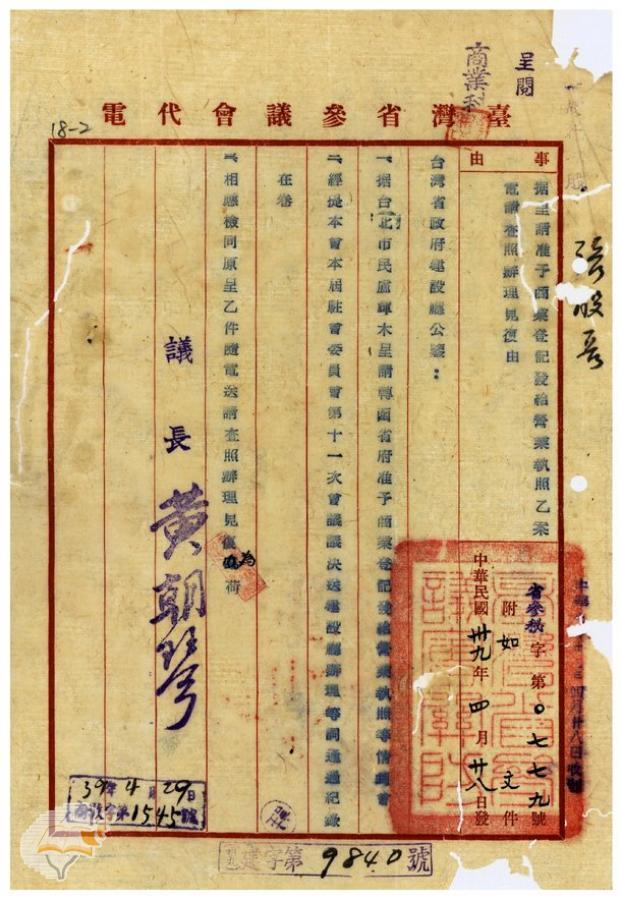 呈閱
商業科
臺灣省參議會代電
18-2
事由
据呈請准予商業登記發給營業執照乙案
電請查照辦理見復由
張股長
省參秘字第0七七九號
附如文件
中華民國卅九年四月廿八日發
台灣省政府建設廳公鑒:
一、据台北市民盧暉木呈請轉函省府准予商業登記發給營業執照等情到會
二、經提本會本屆駐會委員會第十一次會議議決送建設廳辦理等詞通過紀錄
在卷
三、相應檢同原呈乙件隨電送請查照辦理見復為荷
議長黃朝琴
39年4月29日
字第1545號
建字第9840號